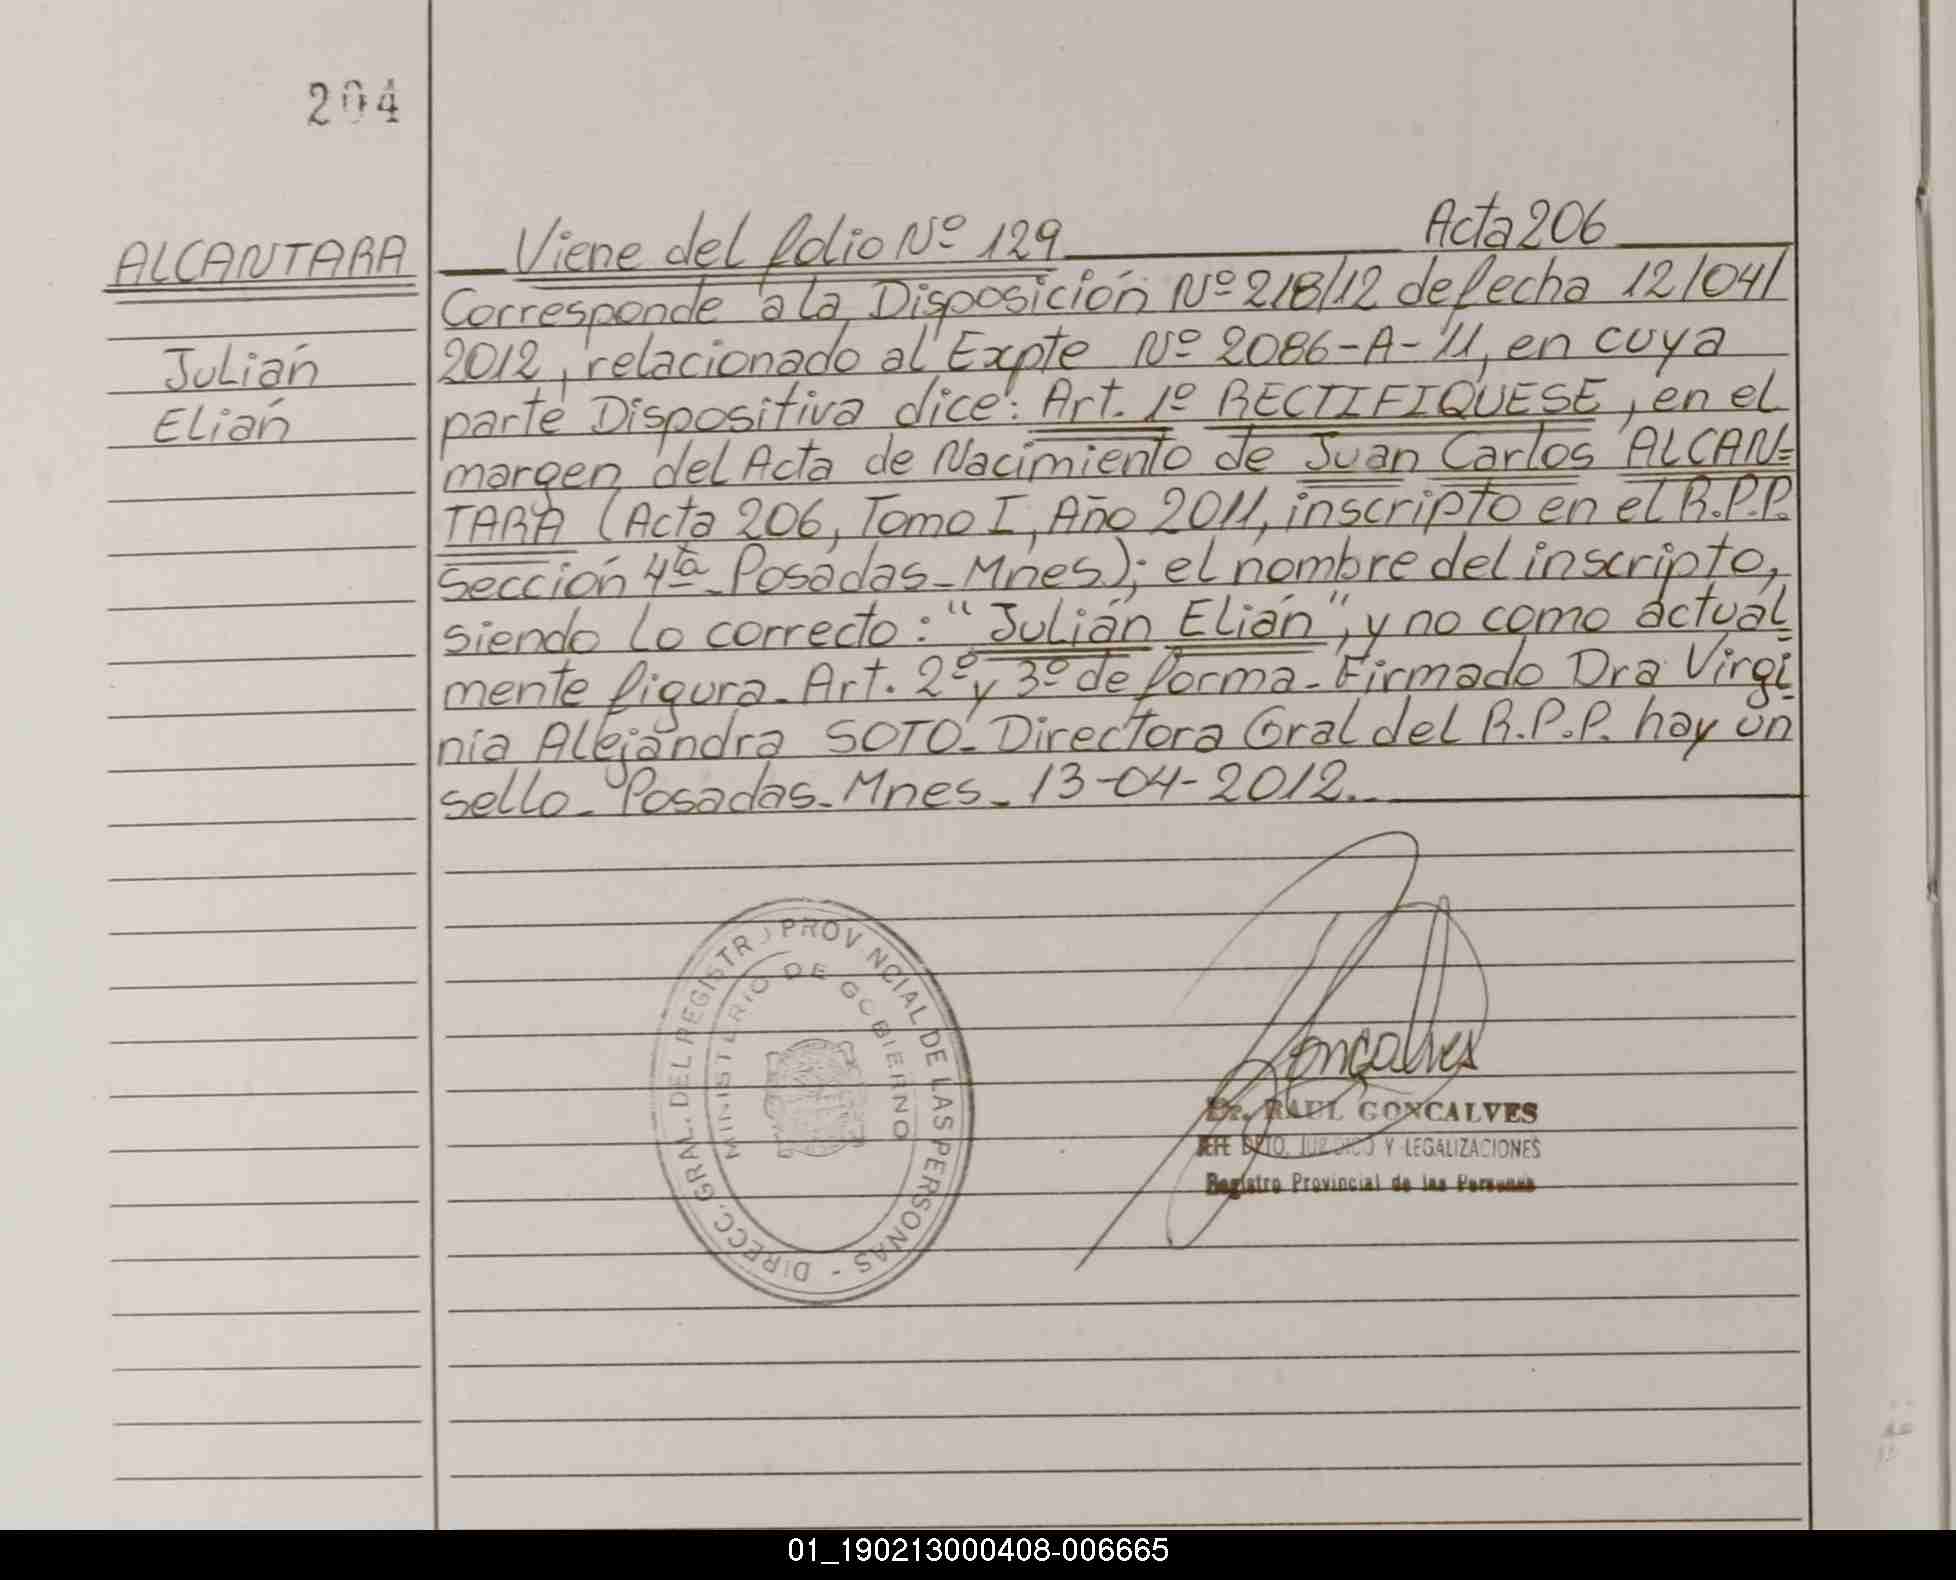 204
Viene del folio Nº 129 Acta 206
ALCANTARA
Julián
Elián
Corresponde a la Disposición Nº 218/12 de fecha 12/04/
2012, relacionado al Expte Nº 2086-A-'11, en cuya
parte Dispositiva dice: Art. 1º RECTIFIQUESE, en el
margen del Acta de Nacimiento de Juan Carlos ALCAN=
TARA (Acta 206, Tomo I, Año 2011, inscripto en el R.P.P.
Sección 4ta- Posadas-Mnes); el nombre del inscripto,
siendo lo correcto: "Julián Elián", y no como actual
mente figura. Art. 2º y 3º de forma- Firmado Dra Virgi
nia Alejandra SOTO- Directora Gral del R.P.P. hay un
sello- Posadas-Mnes- 13-04-2012.-
DIRECC. GRAL. DEL REGISTRO PROVINCIAL DE LAS PERSONAS -
MINISTERIO DE GOBIERNO
Gonçalves
Dr. RAUL GONCALVES
JEFE DPTO. JURIDICO Y LEGALIZACIONES
Registro Provincial de las Personas
01_190213000408-006665